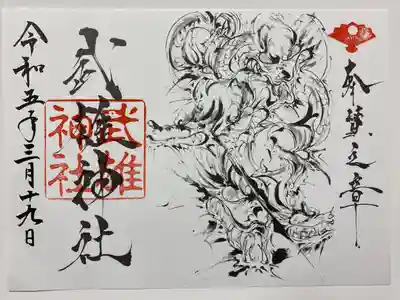 奉賛之章
武雄神社
武雄
神社
令和五年三月十九日